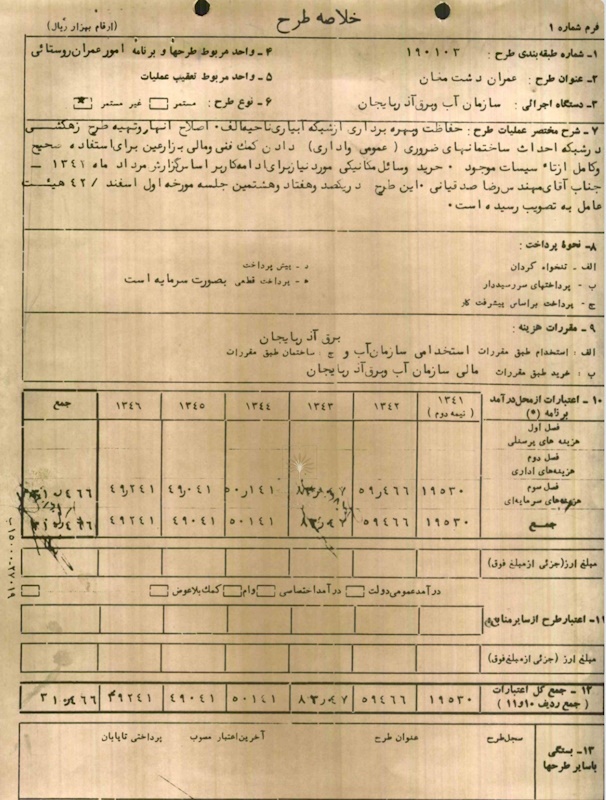 خلاصه طرح
فرم شماره ۱
(ارقام بهزار ریال)
۱- شماره طبقه‌بندی طرح : ۱۹۰۱۰۳
۴- واحد مربوط طرحها و برنامه امور عمران روستائی
۲- عنوان طرح : عمران دشت مغان
۵- واحد مربوط تعقیب عملیات
۳- دستگاه اجرائی : سازمان آب و برق آذربایجان
۶- نوع طرح : مستمر غیر مستمر
۷- شرح مختصر عملیات طرح : حفاظت و بهره برداری از شبکه آبیاری ناحیه الف ۰ اصلاح انهار و تهیه طرح زهکشی
در شبکه احداث ساختمانهای ضروری ( عمومی واداری ) دادن کمک فنی و مالی بزارعین برای استفاده صحیح
وکامل از تاء سیسات موجود ۰ خرید وسائل مکانیکی مورد نیاز برای ادامه کار بر اساس گزارش مرداد ماه ۱۳۴۱ -
جناب آقای مهندس رضا صدقیانی ۰ این طرح در یکصد و هفتاد و هشتمین جلسه مورخه اول اسفند / ۴۲ هیئت
عامل به تصویب رسیده است ۰
۸- نحوهٔ پرداخت :
الف - تنخواه گردان
د - پیش پرداخت
ب - پرداختهای سررسیددار
ه - پرداخت قطعی بصورت سرمایه است
ج - پرداخت براساس پیشرفت کار
۹ - مقررات هزینه :
برق آذربایجان
الف : استخدام طبق مقررات استخدامی سازمان آب و ج : ساختمان طبق مقررات
ب : خرید طبق مقررات مالی سازمان آب وبرق آذربایجان
۱۰ - اعتبارات از محل درآمد برنامه (*)
۱۳۴۱ (نیمه دوم) ۱۳۴۲ ۱۳۴۳ ۱۳۴۴ ۱۳۴۵ ۱۳۴۶ جمع
فصل اول
هزینه های پرسنلی
فصل دوم
هزینه‌های اداری
فصل سوم
هزینه‌های سرمایه‌ای
۱۹۵۳۰ ۵۹٫۴۶۶ ۵۰٫۱۴۱ ۴۹٫۰۴۱ ۴۹٫۲۴۱
جمع ۱۹۵۳۰ ۵۹۴۶۶ ۵۰۱۴۱ ۴۹۰۴۱ ۴۹۲۴۱
مبلغ ارز (جزئی از مبلغ فوق)
درآمد عمومی دولت درآمد اختصاصی وام کمک بلاعوض
۱۱- اعتبار طرح از سایر منابع
مبلغ ارز (جزئی از مبلغ فوق)
۱۲ - جمع کل اعتبارات
( جمع ردیف ۱۰ و ۱۱ )
۱۹۵۳۰ ۵۹۴۶۶ ۸۳٫۰۴۷ ۵۰۱۴۱ ۴۹۰۴۱ ۴۹۲۴۱ ۳۱۰٫۴۶۶
۱۳- بستگی
باسایر طرحها
سجل طرح عنوان طرح آخرین اعتبار مصوب پرداختی تاپایان